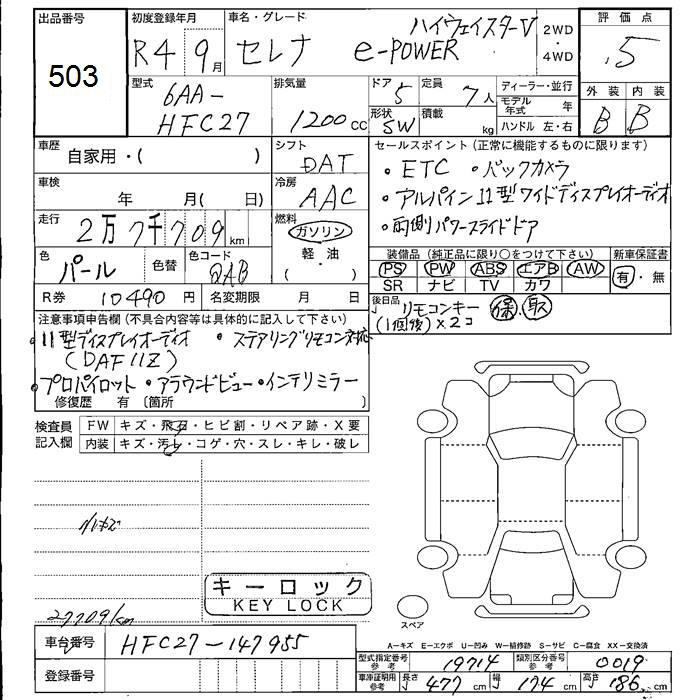 出品番号 初度登録年月 車名・グレード 評価点
503 R4 9月 セレナ e-POWER ハイウェイスターV 2WD・4WD 5
型式 排気量 ドア 定員 ディーラー・並行 外装 内装
6AA-HFC27 1200cc 5 7人 モデル年式 年 B B
形状 SW 積載 kg ハンドル 左・右
車歴 自家用・( ) シフト DAT セールスポイント (正常に機能するものに限ります)
車検 年 月( 日) 冷房 AAC ・ETC ・バックカメラ
・アルパイン11型ワイドディスプレイオーディオ
走行 2万7千709km 燃料 ガソリン ・両側パワースライドドア
軽・油
( )
色 パール 色替 色コード QAB 装備品 (純正品に限り○をつけて下さい) 新車保証書
PS PW ABS エアB AW 有・無
SR ナビ TV カワ
R券 10490円 名変期限 月 日 後日品 リモコンキー(1個後)×2コ 保 取
注意事項申告欄 (不具合内容等は具体的に記入して下さい)
・11型ディスプレイオーディオ ・ステアリングリモコン対応
(DAF11Z)
・プロパイロット・アラウンドビュー・インテリミラー
修復歴 有 〔箇所 〕
検査員記入欄 FW キズ・飛石・ヒビ割・リペア跡・X要
内装 キズ・汚レ・コゲ・穴・スレ・キレ・破レ
小キズ
キーロック
KEY LOCK
27709km
スペア
A-キズ E-エクボ U-凹み W-補修跡 S-サビ C-腐食 XX-交換済
車台番号 HFC27-147955
型式指定番号参考 19714 類別区分番号参考 0019
登録番号 車庫証明用参考 長さ 477cm 幅 174cm 高さ 186cm